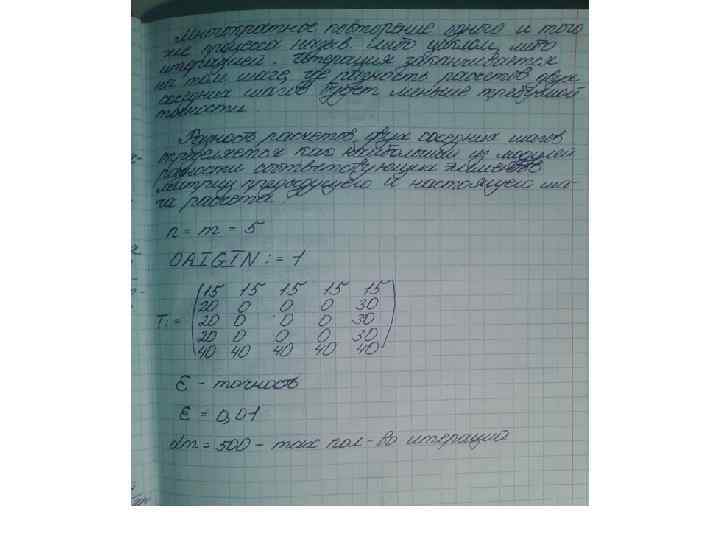 Многократное повторение одного и того
же процесса назыв. либо циклом, либо
итерацией. Итерация заканчивается
на том шаге, где разность расчетов двух
соседних шагов будет меньше требуемой
точности.
Разность расчетов двух соседних шагов
определяется как наибольший из модулей
разности соответствующих элементов
матриц предыдущего и настоящего ша-
га расчета.
n = m = 5
ORIGIN := 1
15 15 15 15 15
20 0 0 0 30
T := 20 0 0 0 30
20 0 0 0 30
40 40 40 40 40
ε - точность
ε = 0,01
dm = 500 - max кол-во итераций